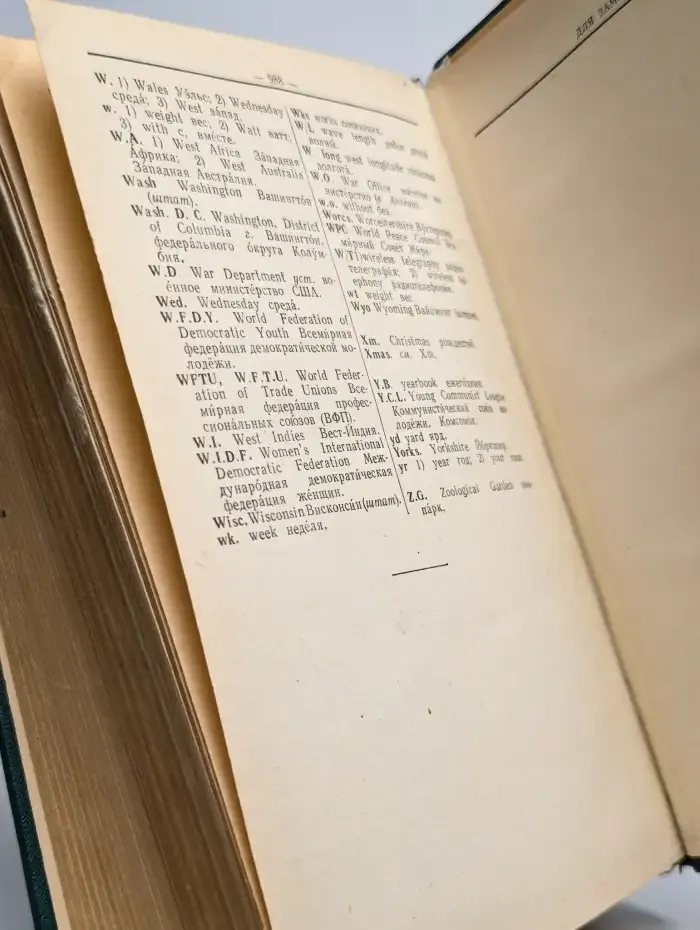 — 988 —
W. 1) Wales Уэ́льс; 2) Wednesday
среда́; 3) West за́пад.
w. 1) weight вес; 2) Watt ватт;
3) with с, вме́сте.
W.A. 1) West Africa За́падная
А́фрика; 2) West Australia
За́падная Австра́лия.
Wash Washington Вашингто́н
(штат).
Wash. D. C. Washington, District
of Columbia г. Вашингто́н,
федера́льного о́круга Колу́м-
бия.
W.D War Department уст. во-
е́нное министе́рство США.
Wed. Wednesday среда́.
W.F.D.Y. World Federation of
Democratic Youth Всеми́рная
федера́ция демократи́ческой мо-
лодёжи.
WFTU, W.F.T.U. World Feder-
ation of Trade Unions Все-
ми́рная федера́ция профес-
сиона́льных сою́зов (ВФП).
W.I. West Indies Вест-И́ндия.
W.I.D.F. Women's International
Democratic Federation Меж-
дунаро́дная демократи́ческая
федера́ция же́нщин.
Wisc. Wisconsin Виско́нсин (штат).
wk. week неде́ля,
Wks works сочине́ния.
W/L wave length
волны́.
W long west longitude
долгота́.
W.O. War Office
нисте́рство (в Англии).
w.o. without без.
Worcs. Worcestershire
WPC World Peace Council
ми́рный Сове́т Ми́ра.
W/T 1) wireless telegraphy
телегра́фия; 2) wireless
ephony радиотелефони́я.
wt weight вес
Wyo Wyoming Вайо́минг (штат)
Xm. Christmas рождество́.
Xmas. см. Xm.
Y.B. yearbook ежего́дник.
Y.C.L. Young Communist League
Коммунисти́ческий сою́з мо-
лодёжи, Комсомо́л.
yd yard ярд.
Yorks. Yorkshire Йо́ркшир.
yr 1) year год; 2) your ваш.
Z.G. Zoological Garden зоо-
па́рк,
ДЛЯ